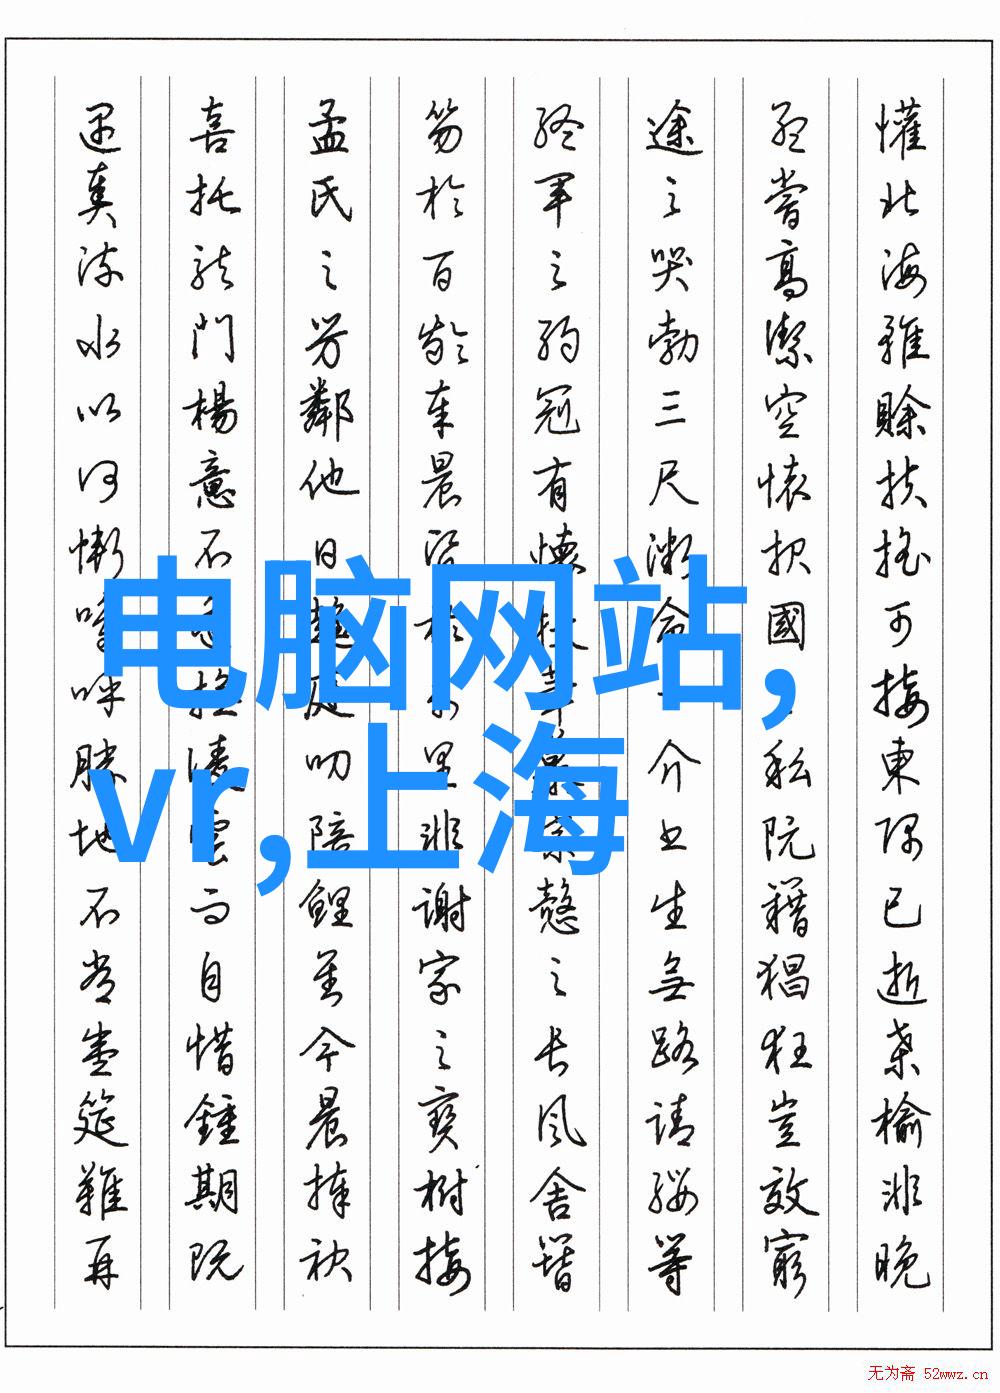 懽北海雖賒扶搖可接東隅已逝桑榆非晚
孟嘗高潔空懷報國私阮籍猖狂豈效窮
途之哭勃三尺微命一介书生無路請纓等
終軍之弱冠有懷投筆慕宗愨之長風舍簪
笏於百齡奉晨昏於万里非謝家之寶樹接
孟氏之芳鄰他日趨庭叨陪鯉對今晨捧袂
喜托龍門楊意不逢撫凌雲而自惜鍾期既
遇奏流水以何慚嗚呼勝地不常盛筵難再
电脑网站,
vr,上海
无为斋 52wwz.cn